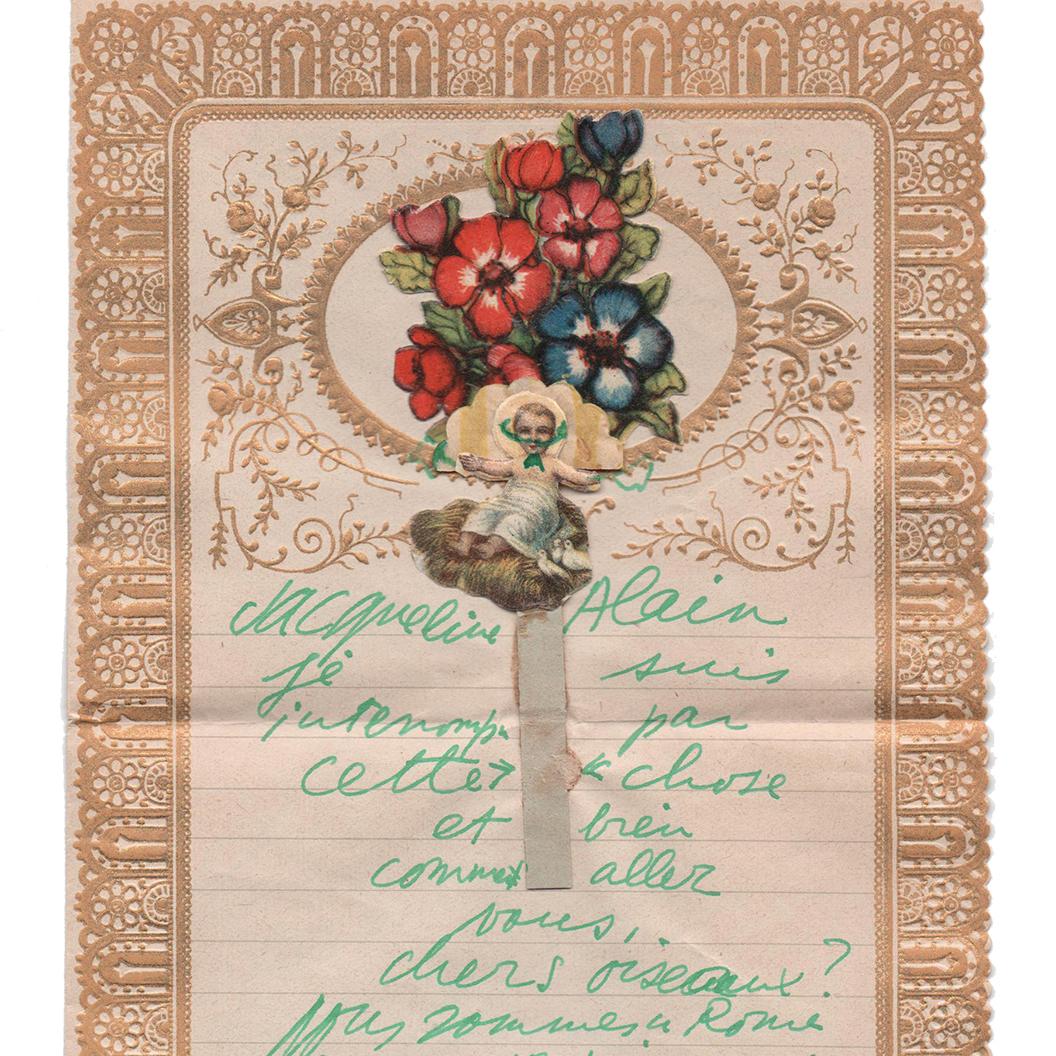 Jacqueline Alain
je suis
interrompu par
cette > < chose
et bien
comment aller
vous,
chers oiseaux ?
Nous sommes à Rome